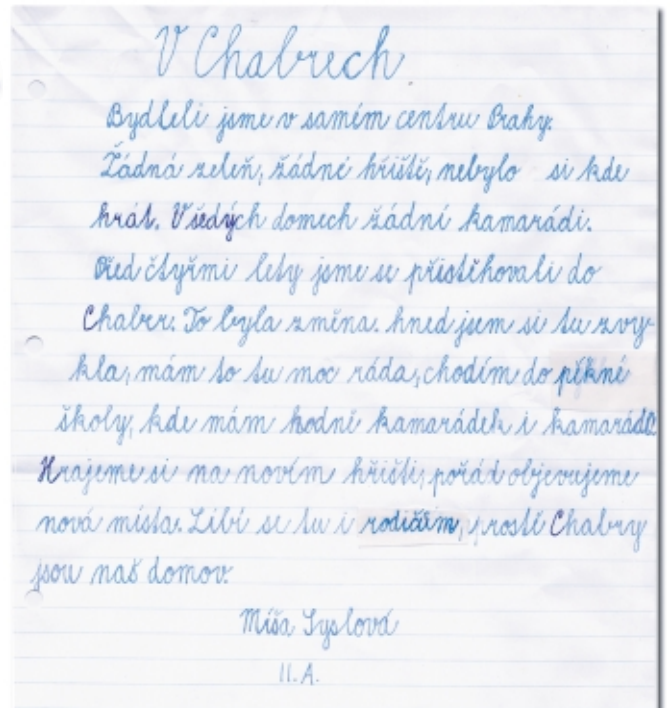 V Chabrech
Bydleli jsme v samém centru Prahy.
Žádná zeleň, žádné hřiště, nebylo si kde
hrát. V šedých domech žádní kamarádi.
Před čtyřmi lety jsme se přistěhovali do
Chaber. To byla změna. hned jsem si tu zvy-
kla, mám to tu moc ráda, chodím do pěkné
školy, kde mám hodně kamarádek i kamarádů.
Hrajeme si na novím hřišti, pořád objevujeme
nová místa. Líbí se tu i rodičům, prostě Chabry
jsou náš domov.
Míša Syslová
II. A.